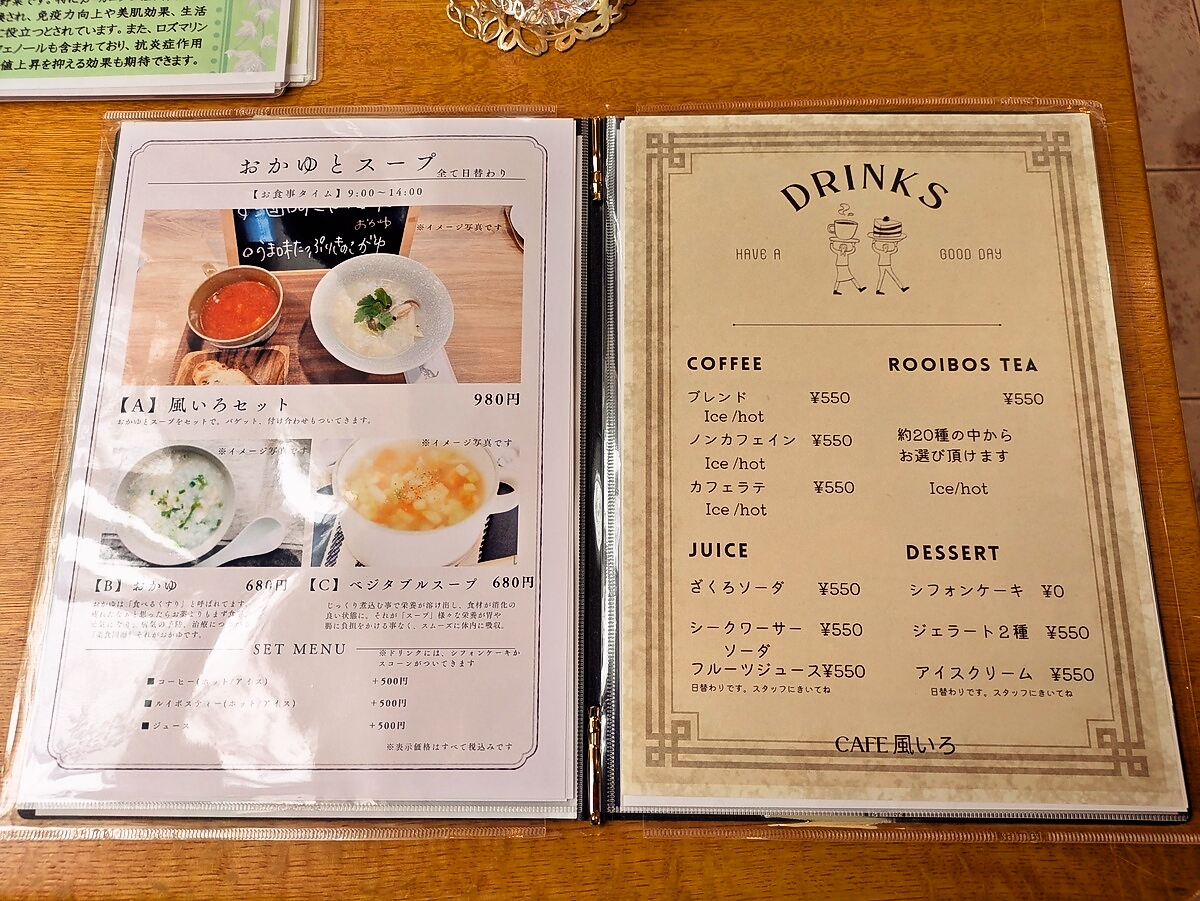 され、免疫力向上や美肌効果、生活
に役立つとされています。また、ロズマリン
フェノールも含まれており、抗炎症作用
値上昇を抑える効果も期待できます。
おかゆとスープ 全て日替わり
【お食事タイム】9:00〜14:00
おかゆ
※イメージ写真です
うま味たっぷりきのこがゆ
【A】風いろセット 980円
おかゆとスープをセットで。バゲット、付け合わせもついてきます。
※イメージ写真です
※イメージ写真です
【B】おかゆ 680円
おかゆは「食べるくすり」と呼ばれてます。
【C】ベジタブルスープ 680円
じっくり煮込む事で栄養が溶け出し、食材が消化の
良い状態に、それが「スープ」様々な栄養が胃や
腸に負担をかける事なく、スムーズに体内に吸収。
SET MENU
※ドリンクには、シフォンケーキか
スコーンがついてきます
■コーヒー(ホット/アイス) +500円
■ルイボスティー(ホット/アイス) +500円
■ジュース +500円
※表示価格はすべて税込みです
DRINKS
HAVE A GOOD DAY
COFFEE
ブレンド ¥550
Ice /hot
ノンカフェイン ¥550
Ice /hot
カフェラテ ¥550
Ice /hot
ROOIBOS TEA
¥550
約20種の中から
お選び頂けます
Ice/hot
JUICE
ざくろソーダ ¥550
シークワーサー ¥550
ソーダ
フルーツジュース¥550
日替わりです。スタッフにきいてね
DESSERT
シフォンケーキ ¥0
ジェラート2種 ¥550
アイスクリーム ¥550
日替わりです。スタッフにきいてね
CAFE 風いろ